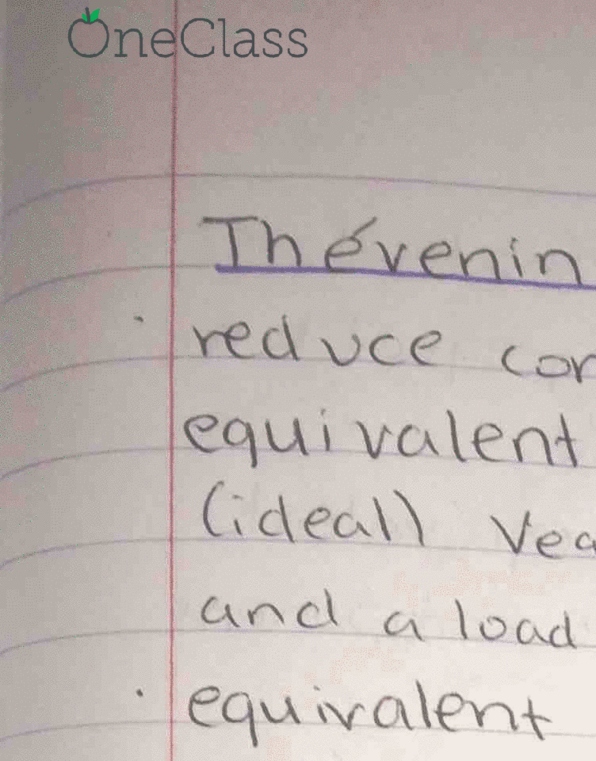 OneClass
Thévenin
reduce
equivalent
(ideal)
and a load
equivalent